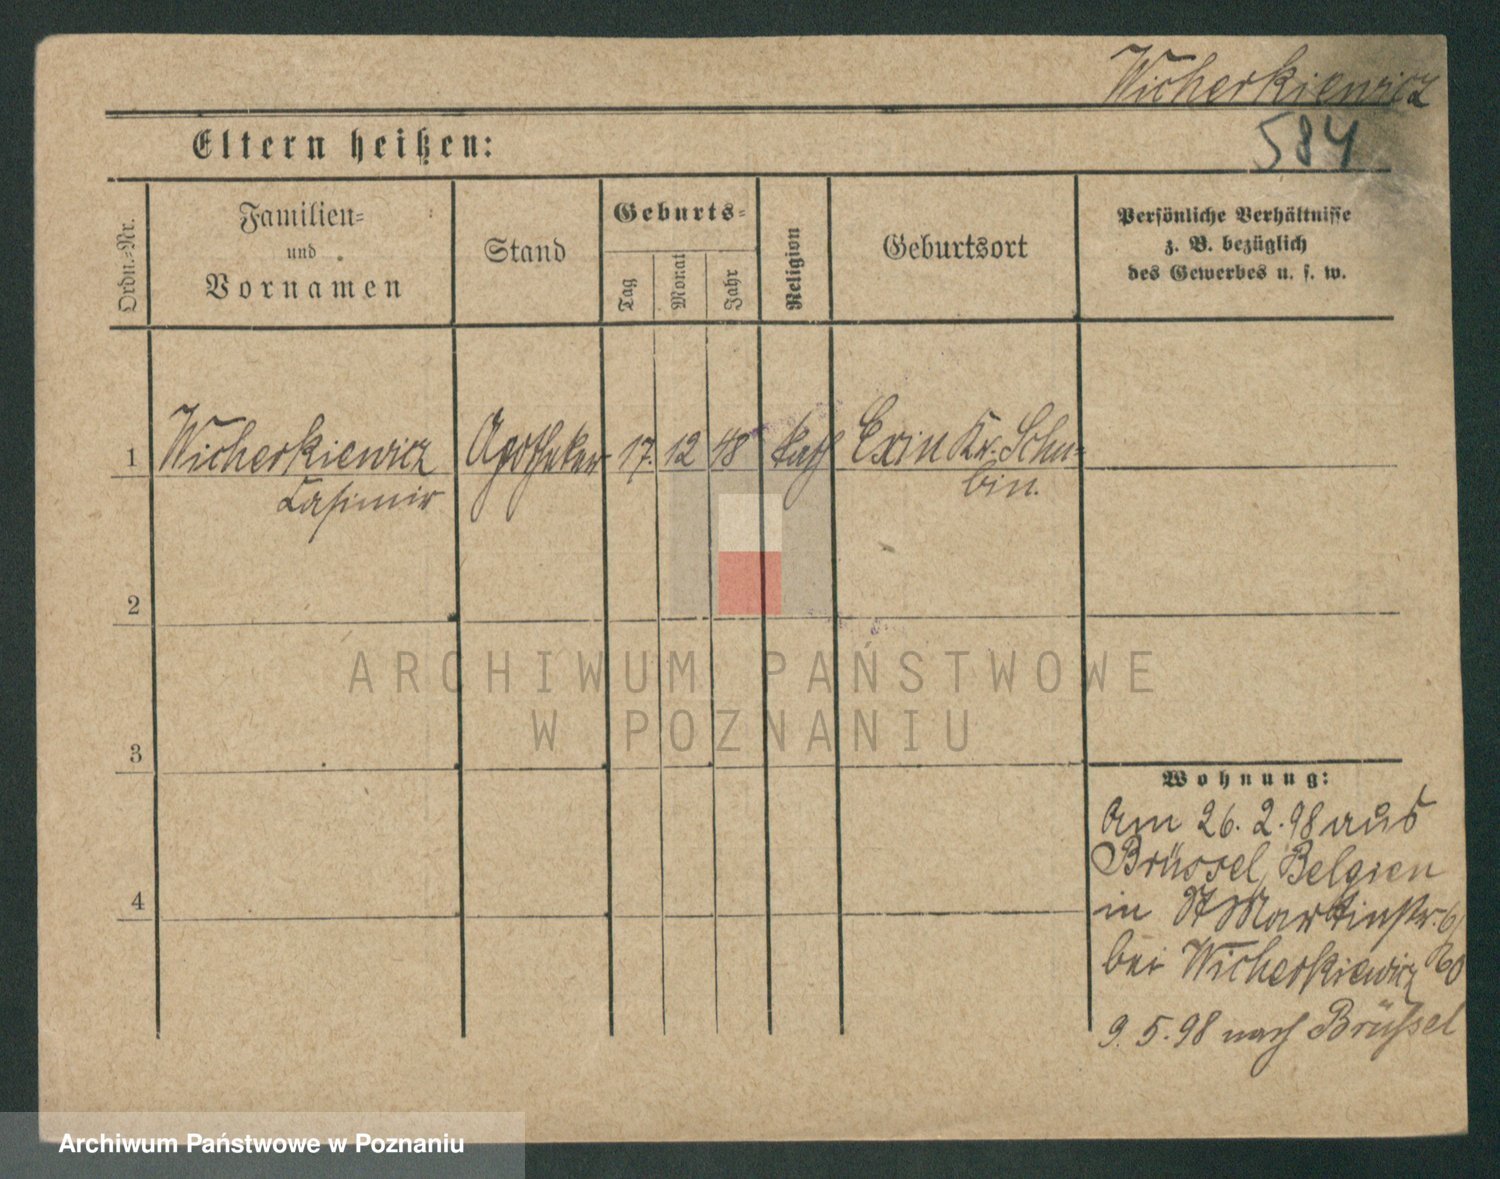 Wicherkiewicz
584
Eltern heißen:
Ordn.-Nr.
Familien-
und
Vornamen
Stand
Geburts-
Tag
Monat
Jahr
Religion
Geburtsort
Persönliche Verhältnisse
z. B. bezüglich
des Gewerbes u. s. w.
1 Wicherkiewicz Apotheker 17. 12 48 kath Exin Kr. Schu-
Casimir bin.
2
ARCHIWUM PAŃSTWOWE
W POZNANIU
3
Wohnung:
Am 26.2.98 aus
Brüssel, Belgien
4
in St Martinstr. 6/
bei Wicherkiewicz
9.5.98 nach Brüssel
Archiwum Państwowe w Poznaniu